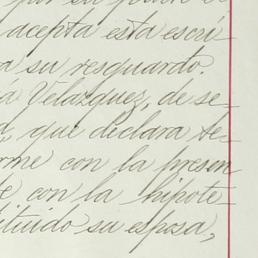 por su poder el
acepta esta escri
a su resguardo.
a Velazquez, de se-
que declara te-
rme con la presen
te con la hipote
tituido su esposa,